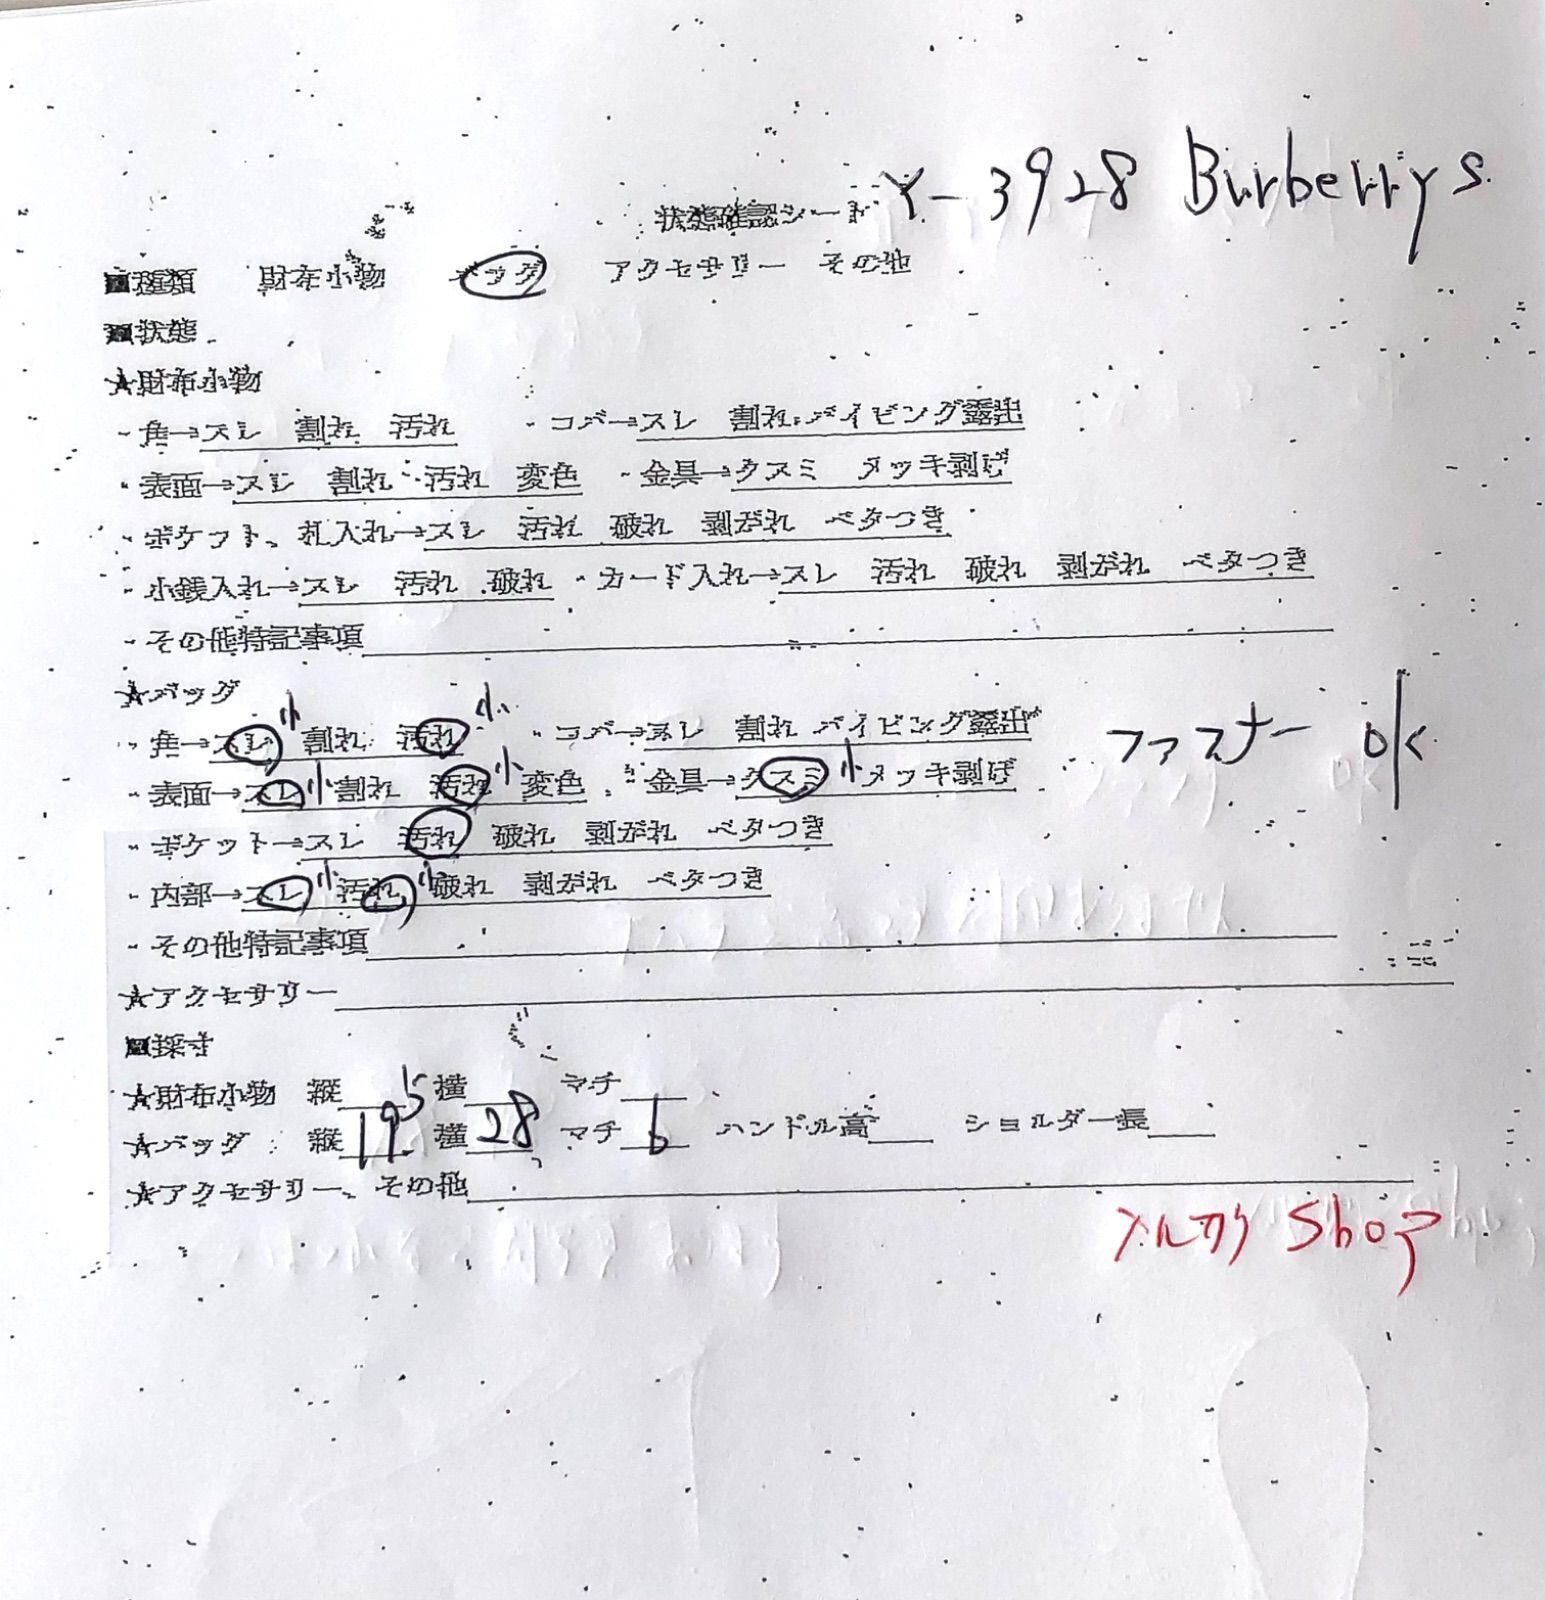 状態確認シート Y-3928 Burberrys
■種類 財布小物 バッグ アクセサリー その他
■状態
★財布小物
・角→スレ 割れ 汚れ ・コバ→スレ 割れ パイピング露出
・表面→スレ 割れ 汚れ 変色 ・金具→クスミ メッキ剥げ
・ポケット、札入れ→スレ 汚れ 破れ 剥がれ ベタつき
・小銭入れ→スレ 汚れ 破れ ・カード入れ→スレ 汚れ 破れ 剥がれ ベタつき
・その他特記事項
★バッグ
・角→スレ 小 割れ 汚れ 小 ・コバ→スレ 割れ パイピング露出 ファスナー ok
・表面→スレ 小 割れ 汚れ 小 変色 ・金具→クスミ 小 メッキ剥げ
・ポケット→スレ 汚れ 破れ 剥がれ ベタつき
・内部→スレ 小 汚れ 小 破れ 剥がれ ベタつき
・その他特記事項
★アクセサリー
■採寸
★財布小物 縦 横 マチ
★バッグ 縦 19.5 横 28 マチ 6 ハンドル高 ショルダー長
★アクセサリー、その他
メルカリ Shop